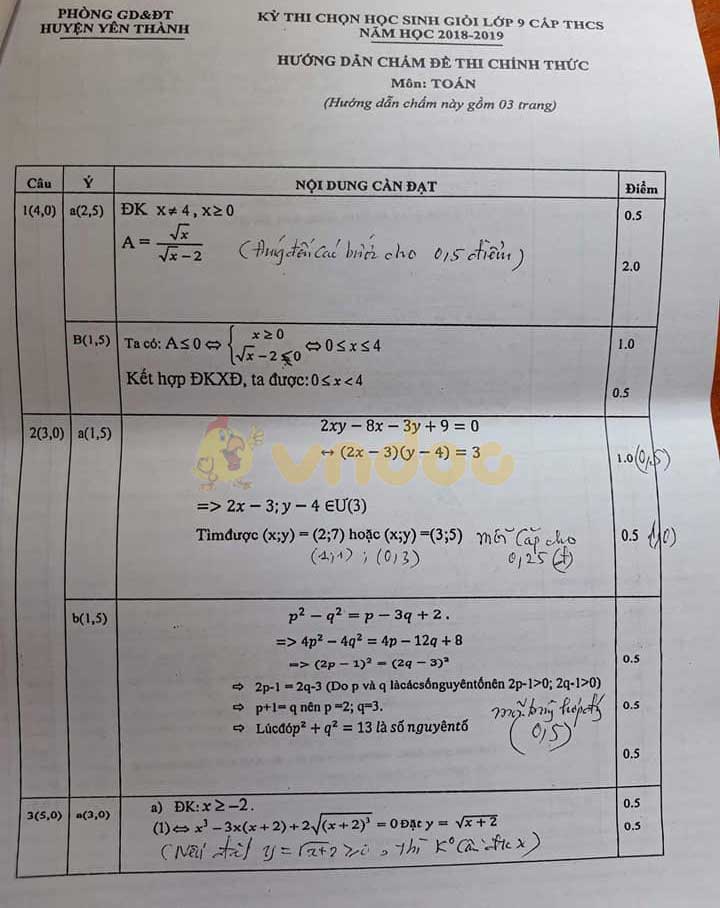 PHÒNG GD&ĐT
HUYỆN YÊN THÀNH
KỲ THI CHỌN HỌC SINH GIỎI LỚP 9 CẤP THCS
NĂM HỌC 2018-2019
HƯỚNG DẪN CHẤM ĐỀ THI CHÍNH THỨC
Môn: TOÁN
(Hướng dẫn chấm này gồm 03 trang)
Câu Ý NỘI DUNG CẦN ĐẠT Điểm
1(4,0) a(2,5) ĐK x≠4, x≥0 0.5
A = √x / (√x − 2) (Đúng đến các bước cho 0,5 điểm) 2.0
B(1,5) Ta có: A≤0 ⇔ { x≥0 √x−2≤0 ⇔ 0≤x≤4 1.0
Kết hợp ĐKXĐ, ta được: 0≤x<4 0.5
2(3,0) a(1,5) 2xy − 8x − 3y + 9 = 0
↔ (2x − 3)(y − 4) = 3 1.0 (0,5)
=> 2x − 3; y − 4 ∈Ư(3)
Tìmđược (x;y) = (2;7) hoặc (x;y) =(3;5) mỗi cặp cho 0.5 (1,0)
(1;1) ; (0;3) 0,25 (đ)
b(1,5) p² − q² = p − 3q + 2 .
=> 4p² − 4q² = 4p − 12q + 8
=> (2p − 1)² = (2q − 3)² 0.5
⇨ 2p-1 = 2q-3 (Do p và q làcácsốnguyêntốnên 2p-1>0; 2q-1>0)
⇨ p+1= q nên p =2; q=3. 0.5
⇨ Lúcđóp² + q² = 13 là số nguyêntố (0,5)
0.5
3(5,0) a(3,0) a) ĐK: x ≥ −2 . 0.5
(1)⇔ x³ − 3x(x + 2) + 2√(x + 2)³ = 0 Đặt y = √x + 2 0.5
(Nếu đặt y = √x+2 ≥0, thì K⁰ cần đk x)